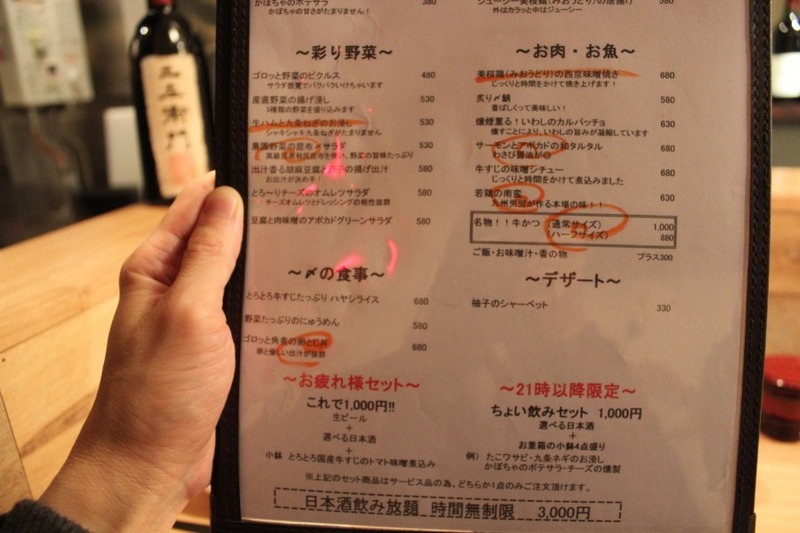 かぼちゃのポテサラ 380
かぼちゃの甘さがたまりません！
～彩り野菜～
ゴロッと野菜のピクルス 480
サラダ感覚でパクパクいけちゃいます
産直野菜の揚げ浸し 530
5種類の野菜を盛り込みます
生ハムと九条ねぎのお浸し 530
シャキシャキ九条ねぎがたまりません
農園野菜の昆布〆サラダ 530
野菜の旨味たっぷり
出汁香る胡麻豆腐と茄子の揚げ出汁 580
お出汁が決め手！
とろ～りチーズのオムレツサラダ 580
チーズオムレツとドレッシングの相性抜群
豆腐と肉味噌のアボカドグリーンサラダ 580
～〆の食事～
とろとろ牛すじたっぷり ハヤシライス 680
野菜たっぷりのにゅうめん 580
ゴロッと角煮の卵とじ丼 680
卵と優しい出汁が抜群
～お疲れ様セット～
これで1,000円!!
生ビール
+
選べる日本酒
+
小鉢 とろとろ国産牛すじのトマト味噌煮込み
ジューシー美桜鶏(みおうどり)の唐揚げ
外はカラッと中はジューシー
～お肉・お魚～
美桜鶏(みおうどり)の西京味噌焼き 680
じっくりと時間をかけて焼き上げます！
炙り〆鯖 580
香ばしくって美味しい！
燻煙薫る！いわしのカルパッチョ 630
燻すことにより、いわしの旨みが凝縮しています
サーモンとアボカドの和タルタル 680
わさび醤油が◎
牛すじの味噌シチュー 680
じっくりと時間をかけて煮込みました
若鶏の南蛮 630
九州男児が作る本場の味！！
名物！！牛かつ (通常サイズ) 1,000
(ハーフサイズ) 880
ご飯・お味噌汁・香の物 プラス300
～デザート～
柚子のシャーベット 330
～21時以降限定～
ちょい飲みセット 1,000円
選べる日本酒
+
お重箱の小鉢4点盛り
例）たこワサビ・九条ネギのお浸し
かぼちゃのポテサラ・チーズの燻製
※上記のセット商品はサービス品の為、どちらか1点のみご注文頂けます。
日本酒飲み放題 時間無制限 3,000円